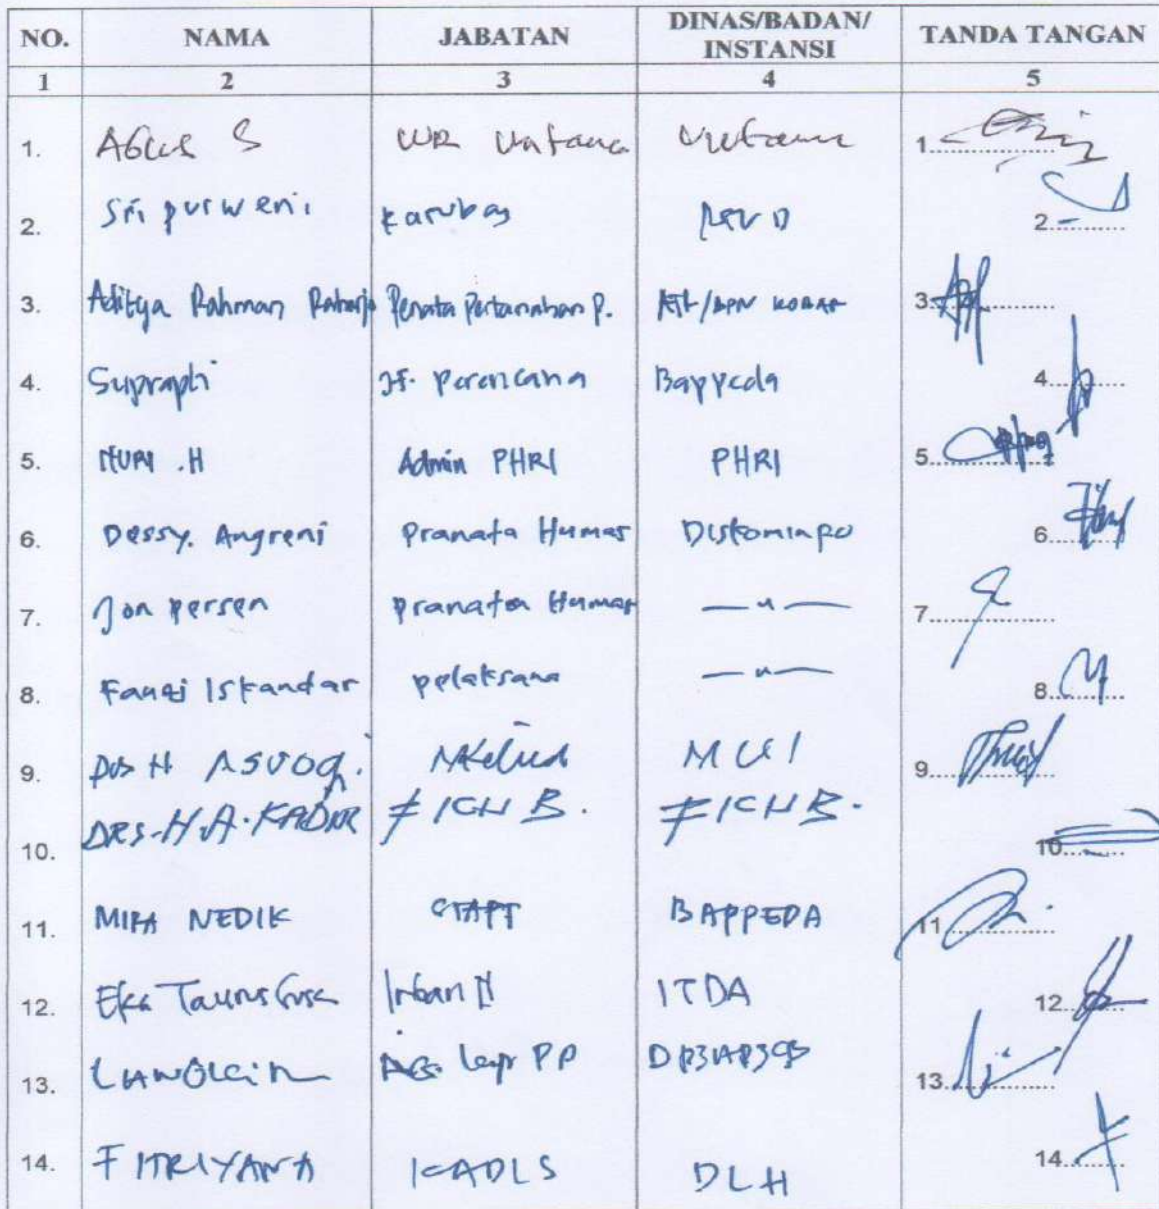 NO. NAMA JABATAN DINAS/BADAN/ INSTANSI TANDA TANGAN
1 2 3 4 5
1. AGUS S WR 1
2. Sri purweni 2
3. Aditya Rahman Raharjo Penata Pertanahan P. ATR/BPN KOBAR 3
4. Suprapti JF. Perencana Bappeda 4
5. NURI .H Admin PHRI PHRI 5
6. Dessy. Angreni Pranata Humas Diskominfo 6
7. Jon persen pranata Humas — " — 7
8. Fauzi Iskandar pelaksana — " — 8
9. MUI 9
10. DRS. H. A. KADIR FKUB. FKUB. 10
11. MIRA NEDIK STAFF BAPPEDA 11
12. Eka Irban II ITDA 12
13. PP DP3AP2KB 13
14. FITRIYANA DLH 14